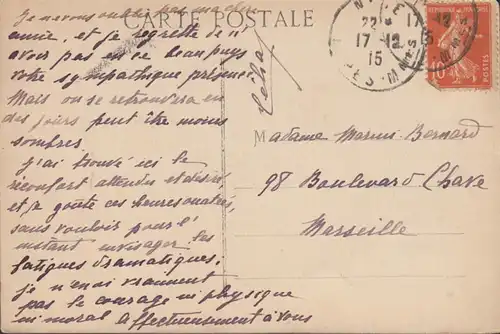 Je ne vous oublie pas ma chère
CARTE POSTALE
amie, et je regrette de n'
avoir pas en ce beau pays
votre sympathique présence.
Mais on se retrouvera en
des jours peut être moins
sombres.
J'ai trouvé ici le
réconfort attendu et désiré,
et je goûte ces heures exquises,
sans vouloir pour l'
instant envisager les
fatigues dramatiques;
je n'en ai vraiment
pas le courage ni physique
ni moral à affectueusement à vous
NICE
17-12
15
10
POSTES
Madame Marius-Bernard
98 Boulevard Chave
Marseille